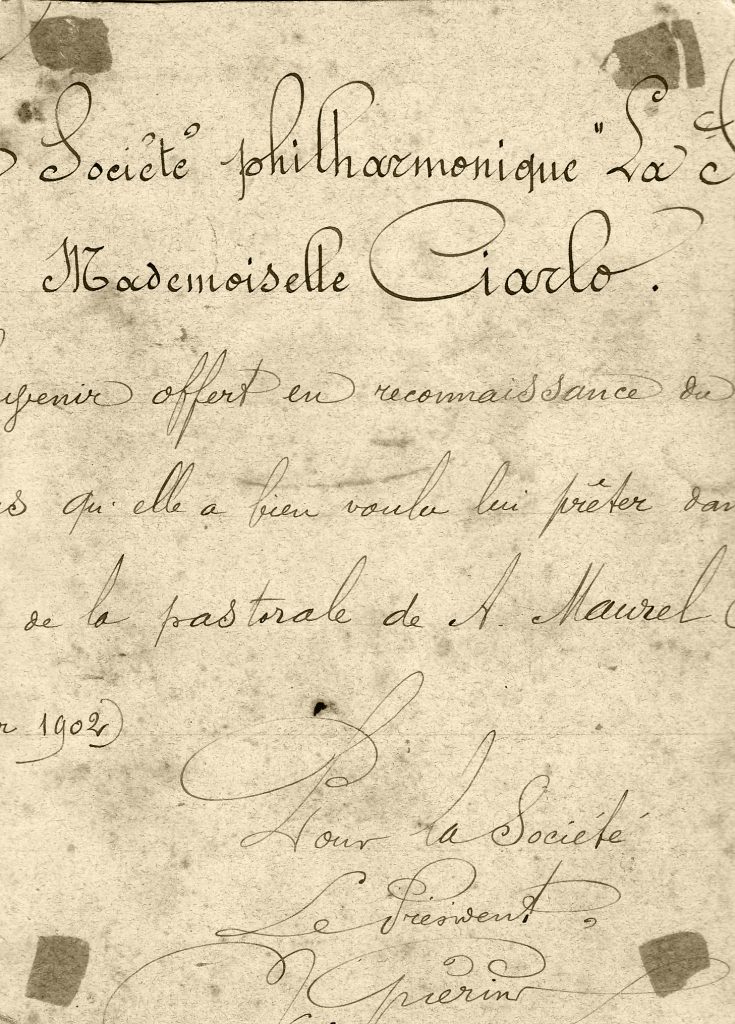 Société philharmonique "La
Mademoiselle Ciarlo.
uvenir offert en reconnaissance du
qu'elle a bien voulu lui prêter dan
de la pastorale de A. Maurel (
1902)
Pour la Société
Le Président,
Guérin